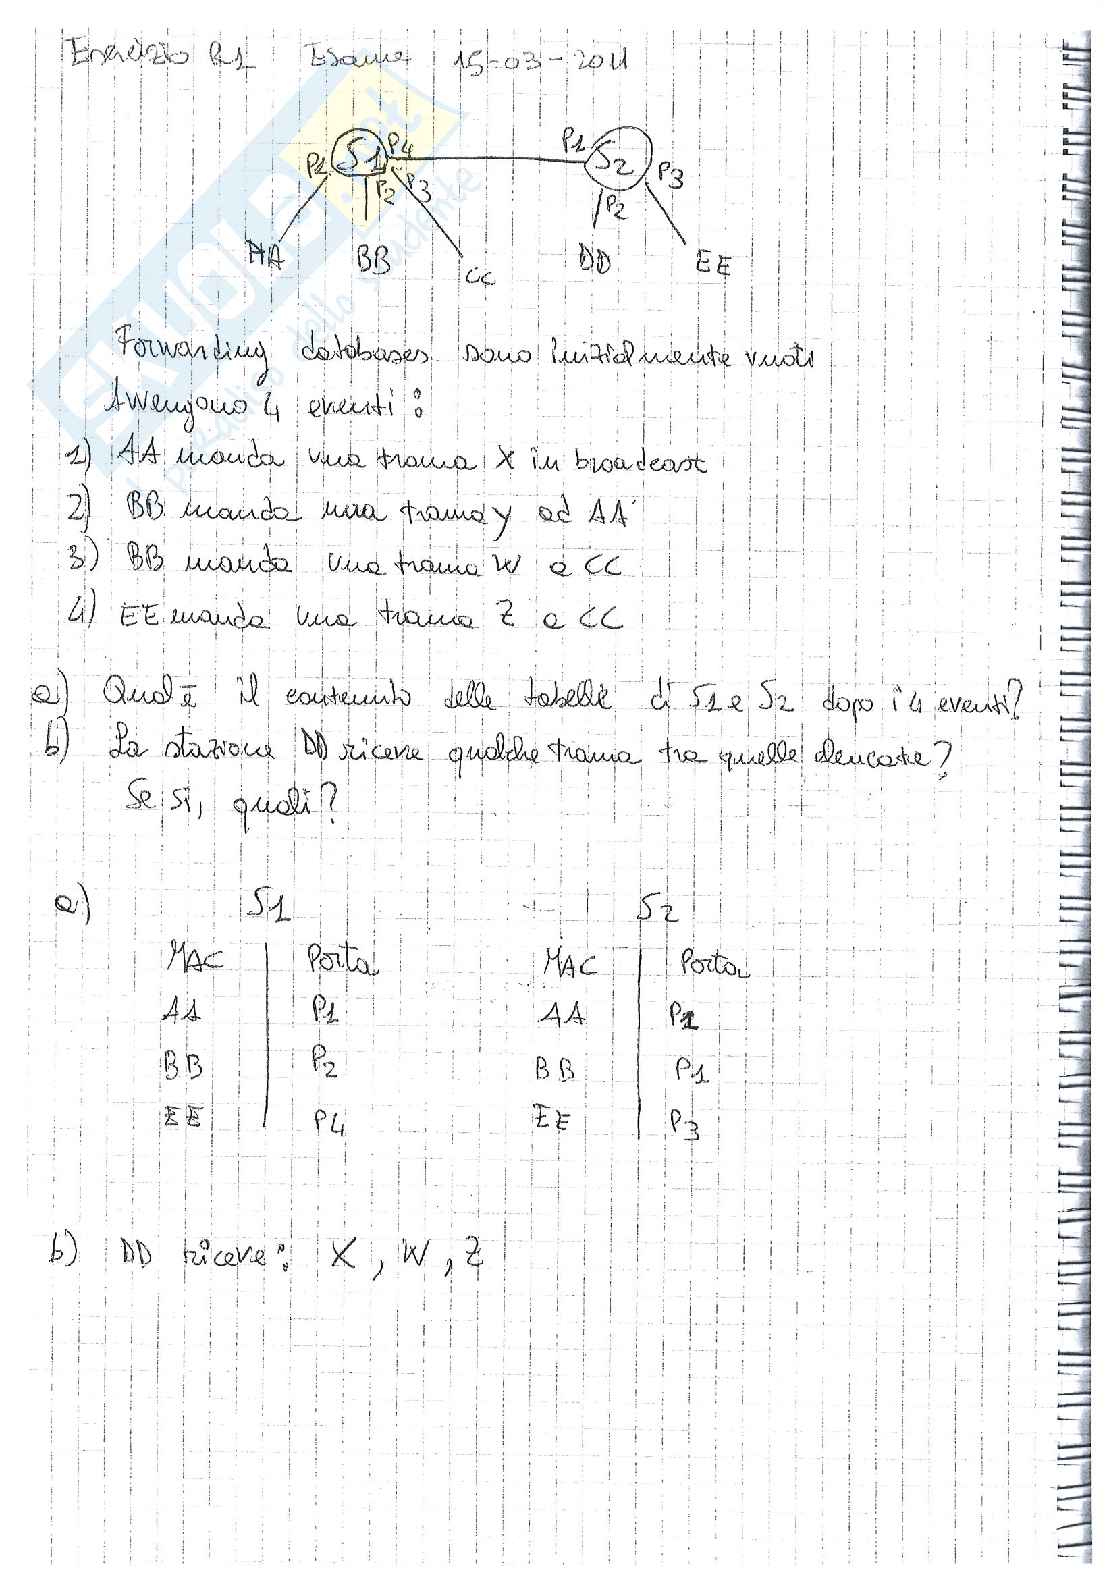 Esercizio R1 Esame 15-03-2011
P1 S1 P4 P1 S2
P2 P3 P2 P3
AA BB CC DD EE
Forwarding databases sono inizialmente vuoti
Avvengono 4 eventi:
1) AA manda una trama X in broadcast
2) BB manda una trama y ad AA
3) BB manda una trama W a CC
4) EE manda una trama Z a CC
a) Qual è il contenuto delle tabelle di S1 e S2 dopo i 4 eventi?
b) La stazione DD riceve qualche trama tra quelle elencate?
Se si, quali?
a) S1 S2
MAC Porta MAC Porta
AA P1 AA P1
BB P2 BB P1
EE P4 EE P3
b) DD riceve: X, W, Z
SKUOLA.net
il paradiso dello studente